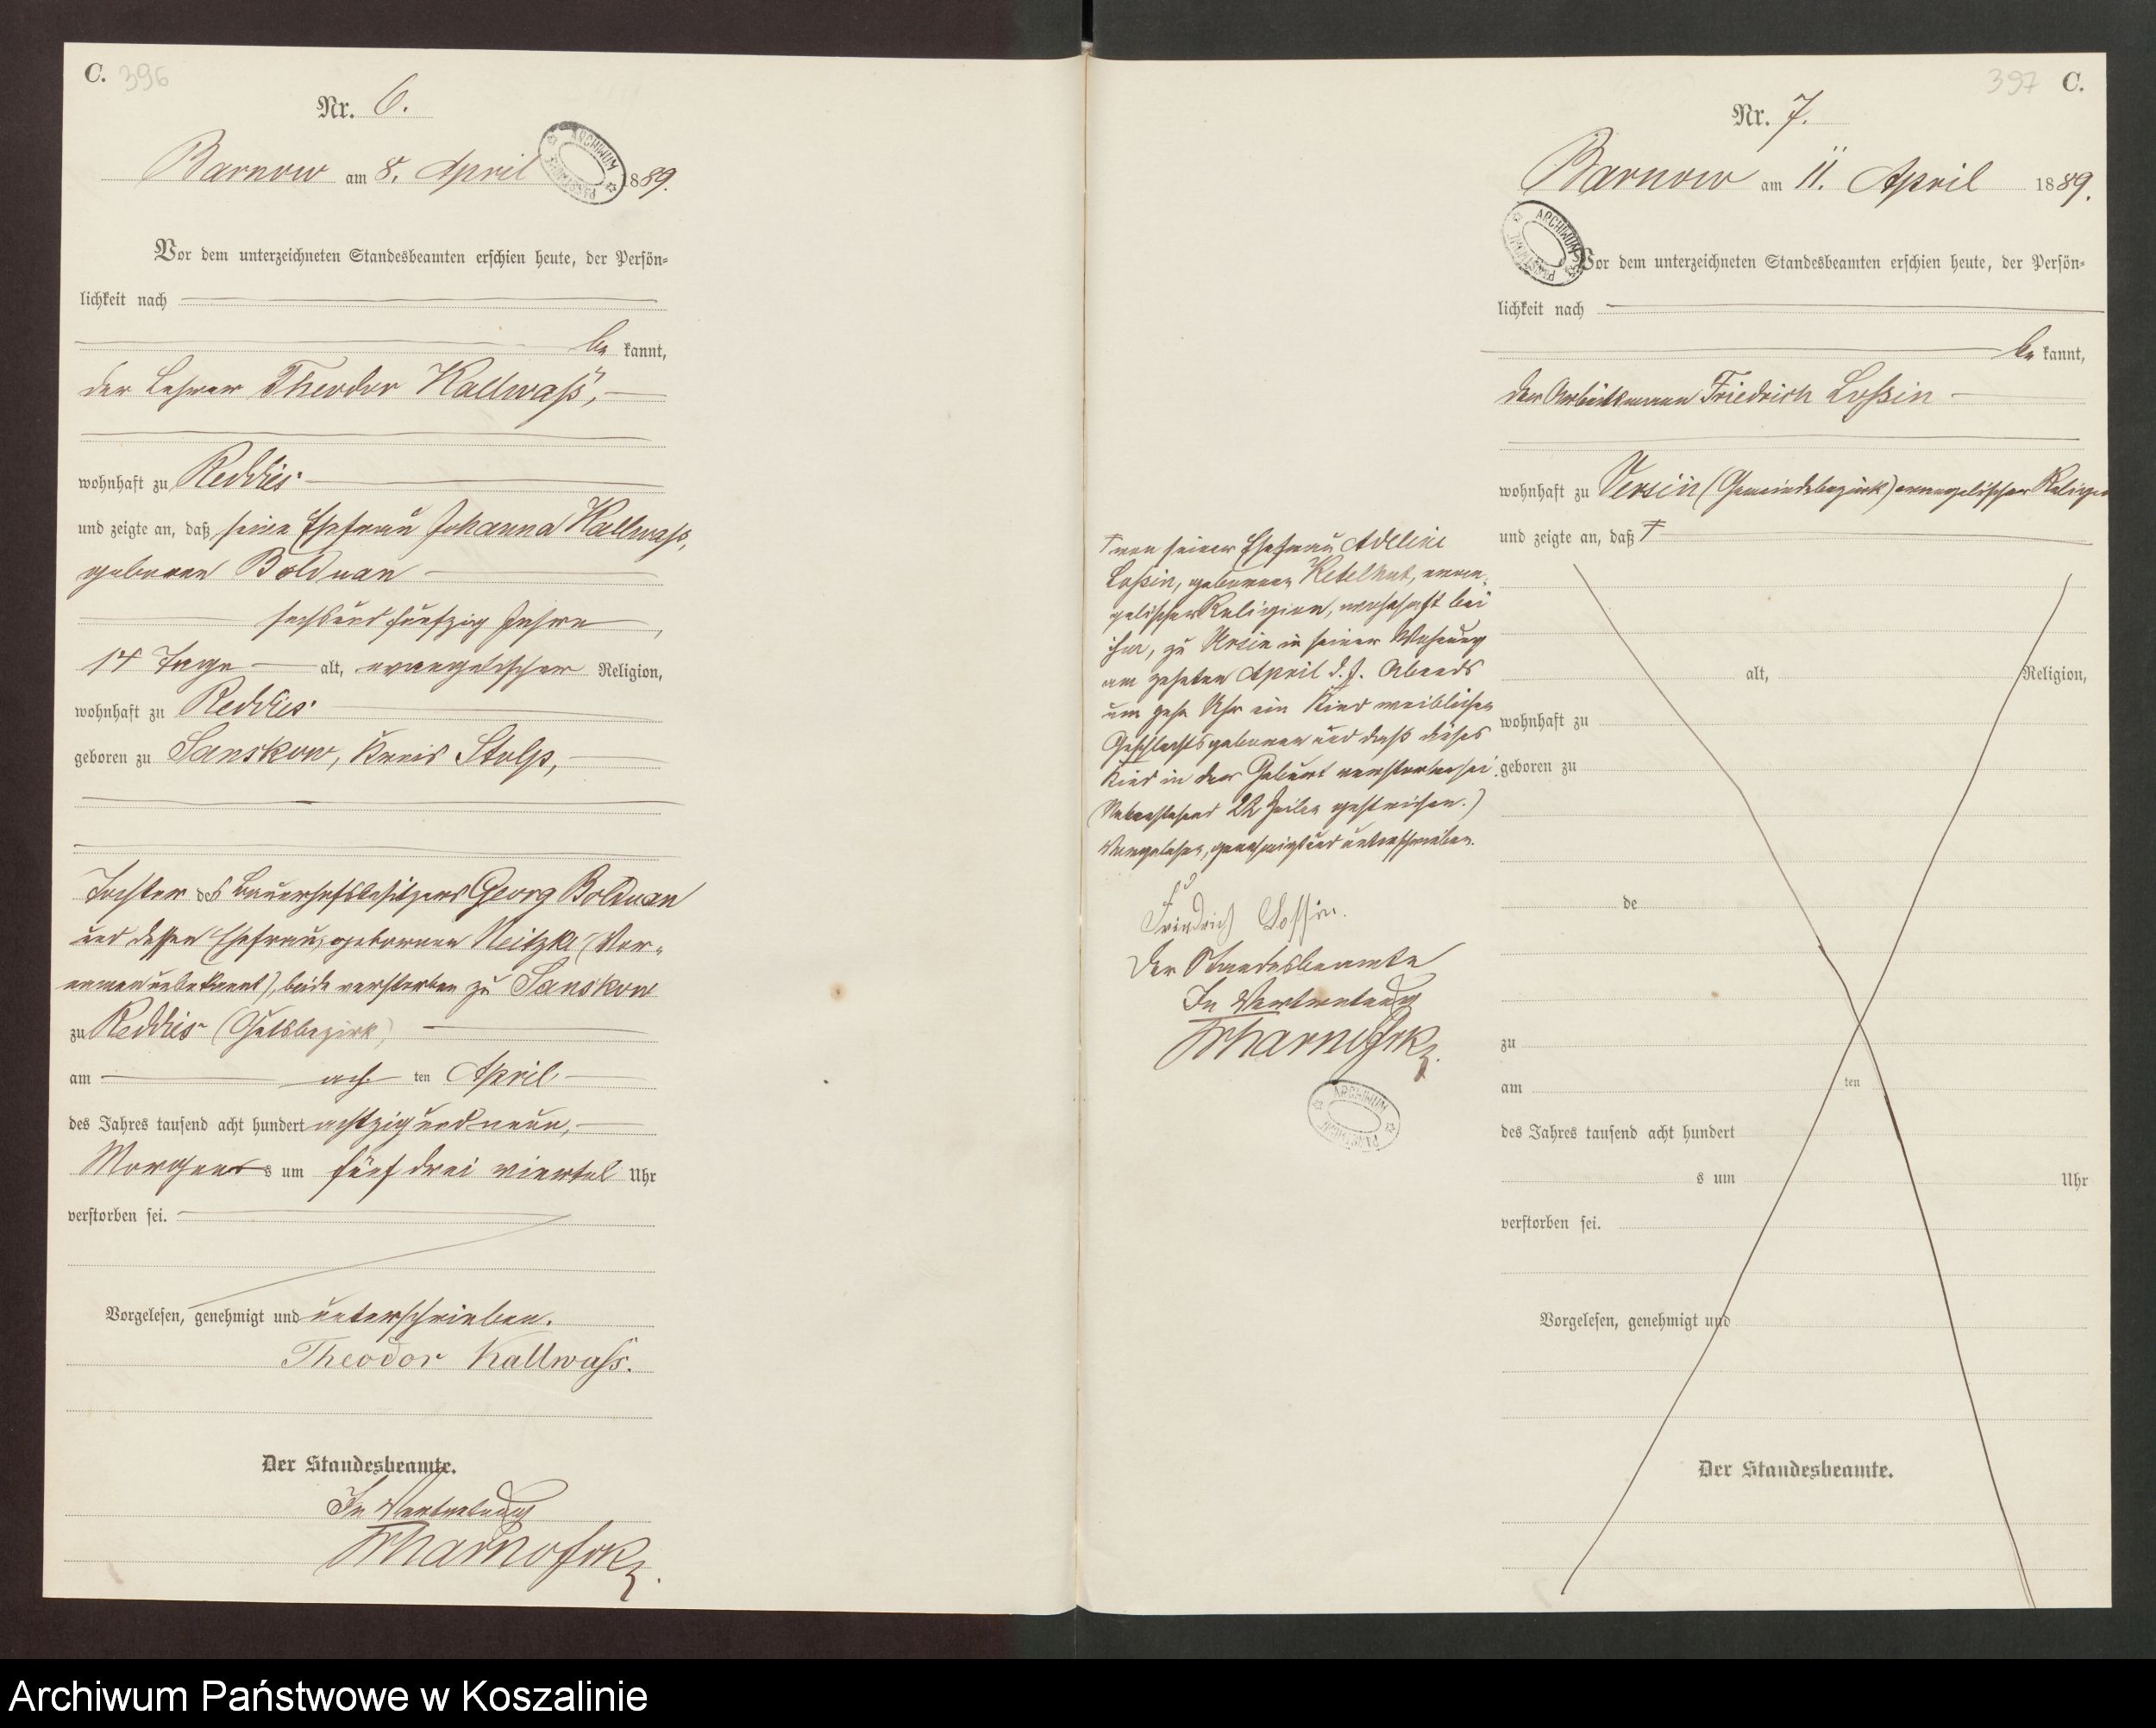 C. 396
Nr. 6.
Barnow am 8. April 1889.
ARCHIWUM
PAŃSTWOWE
Vor dem unterzeichneten Standesbeamten erschien heute, der Persön-
lichkeit nach
be kannt,
der Lehrer Theodor Kallwaß,
wohnhaft zu Reddies
und zeigte an, daß seine Ehefrau Johanna Kallwass,
geborene Bolduan
sechsundfünfzig Jahre,
14 Tage alt, evangelischer Religion,
wohnhaft zu Reddies
geboren zu Sanskow, Kreis Stolp,
Tochter des Bauerhofsbesitzers Georg Bolduan
und dessen Ehefrau, geborenen Neitzke (Vor-
namen unbekannt), beide verstorben zu Sanskow
zu Reddies (Gutsbezirk)
am ach ten April
des Jahres tausend acht hundert achtzig und neun,
Morgens um fünf drei viertel Uhr
verstorben sei.
Vorgelesen, genehmigt und unterschrieben.
Theodor Kallwass.
Der Standesbeamte.
In Vertretung
397 C.
Nr. 7.
Barnow am 11. April 1889.
ARCHIWUM
PAŃSTWOWE
Vor dem unterzeichneten Standesbeamten erschien heute, der Persön-
lichkeit nach
be kannt,
der Arbeitsmann Friedrich Loßin
wohnhaft zu Versin (Gemeindebezirk) evangelischer Religion
und zeigte an, daß
von seiner Ehefrau Adeline
Loßin, geborenen Ketelhut, evan-
gelischer Religion, wohnhaft bei
ihm, zu Versin in seiner Wohnung
am zehnten April d. J. Abends
um zehn Uhr ein Kind weiblichen
Geschlechts geboren und daß dieses
Kind in der Geburt verstorben sei.
(Nebenstehend 22 Zeilen gestrichen.)
Vorgelesen, genehmigt und unterschrieben.
Friedrich Lossin.
Der Standesbeamte
In Vertretung
ARCHIWUM
PAŃSTWOWE
alt, Religion,
wohnhaft zu
geboren zu
de
zu
am ten
des Jahres tausend acht hundert
s um Uhr
verstorben sei.
Vorgelesen, genehmigt und
Der Standesbeamte.
Archiwum Państwowe w Koszalinie